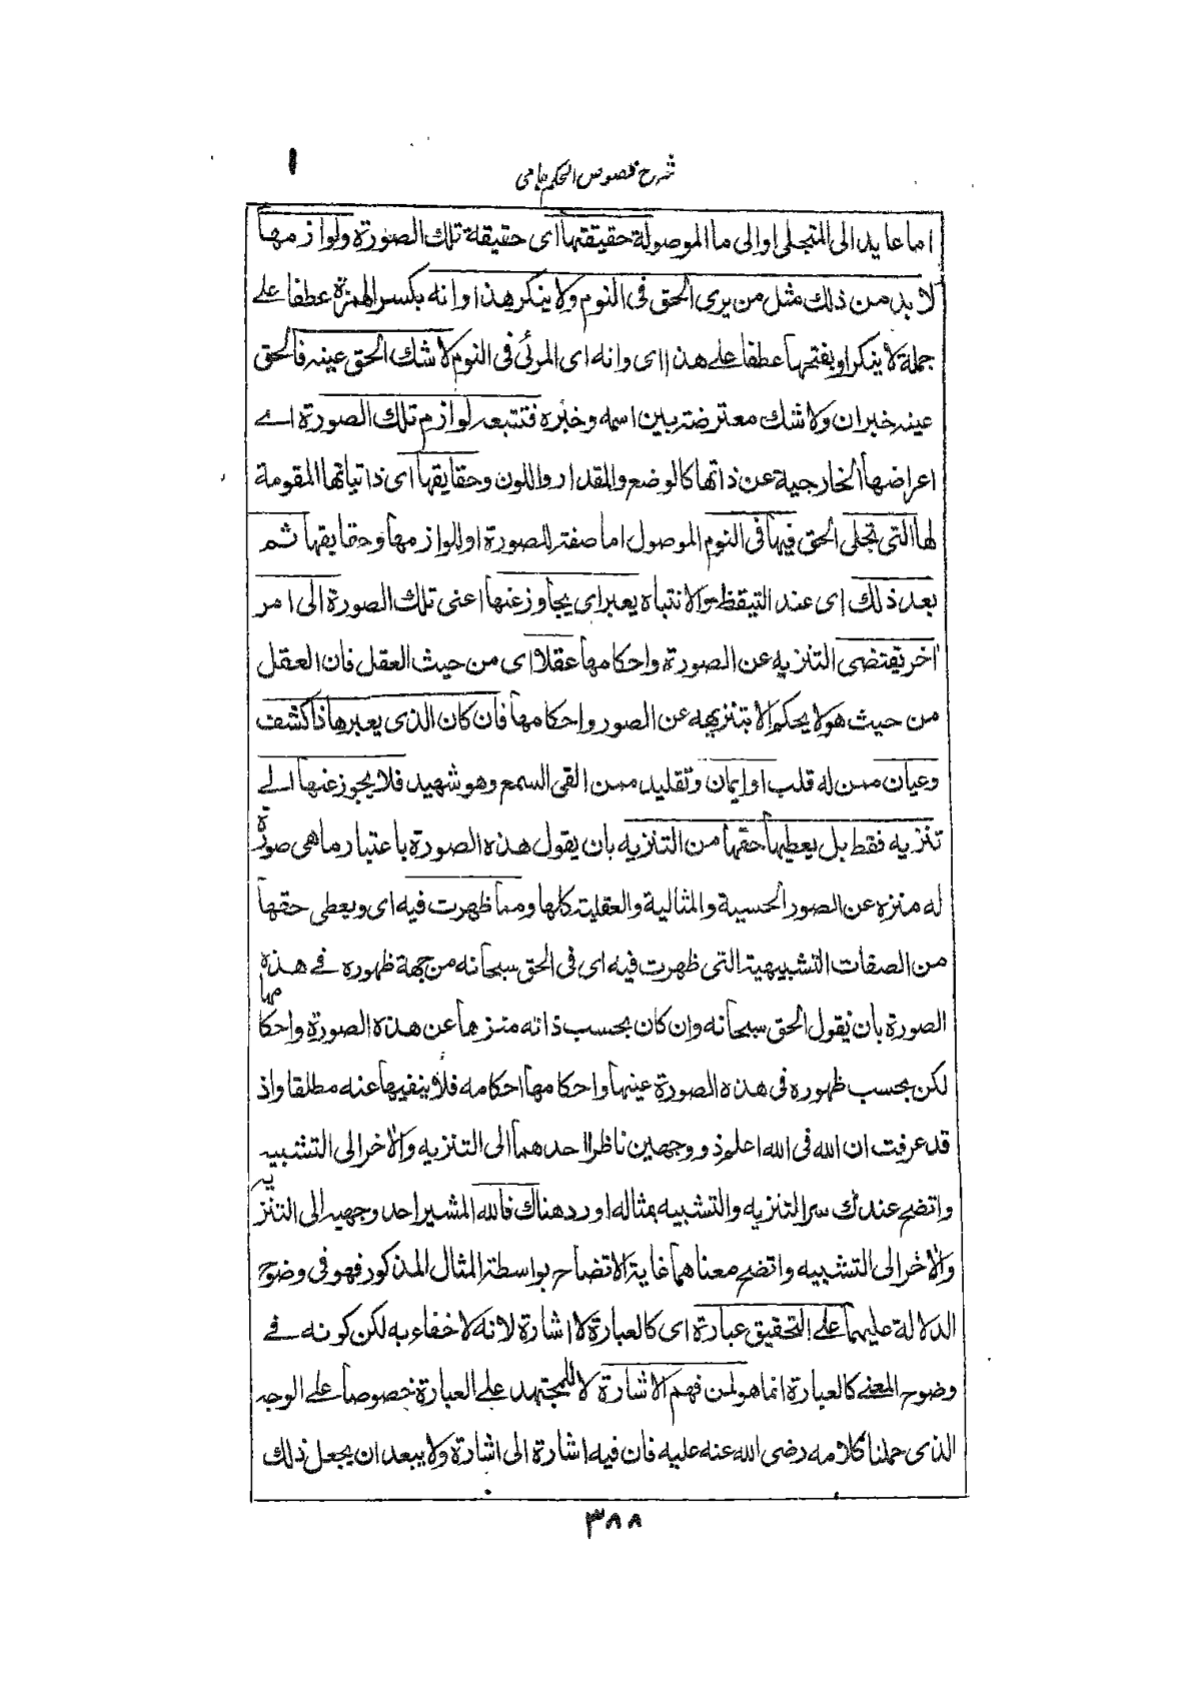 ١
شرح فصوص الحكم جامى
اما عايد الى المتجلى او الى ما الموصولة حقيقتها اى حقيقة تلك الصورة ولوازمها
لا بد من ذلك مثل من يرى الحق فى النوم ولا ينكر هذا وانه بكسر الهمزة عطفا على
جملة لا ينكر او بفتحها عطفا على هذا اى وانه اى المرئى فى النوم لا شك الحق عينه فالحق
عينه خبران ولا شك معترضة بين اسمه وخبره فتتبعه لوازم تلك الصورة اى
اعراضها الخارجية عن ذاتها كالوضع والمقدار واللون وحقايقها اى ذاتياتها المقومة
لها التى تجلى الحق فيها فى النوم الموصول اما صفة للصورة او للوازمها وحقايقها ثم
بعد ذلك اى عند التيقظ والانتباه يعبر اى يجاوز عنها اعنى تلك الصورة الى امر
اخر يقتضى التنزيه عن الصورة واحكامها عقلا اى من حيث العقل فان العقل
من حيث هو لا يحكم الا بتنزيهه عن الصور واحكامها فان كان الذى يعبرها ذا كشف
وعيان ممن له قلب او ايمان وتقليد ممن القى السمع وهو شهيد فلا يجوز عنها الى
تنزيه فقط بل يعطيها حقها من التنزيه بان يقول هذه الصورة باعتبار ما هى صورة
له منزه عن الصور الحسية والمثالية والعقلية كلها ومما ظهرت فيه اى ويعطى حقها
من الصفات التشبيهية التى ظهرت فيه اى فى الحق سبحانه من جهة ظهوره فى هذه
الصورة بان يقول الحق سبحانه وان كان بحسب ذاته منزها عن هذه الصورة واحكامها
لكن بحسب ظهوره فى هذه الصورة عينها واحكامها احكامه فلا ينفيها عنه مطلقا واذ
قد عرفت ان الله فى الله اعلم ذو وجهين ناظر احدهما الى التنزيه والاخر الى التشبيه
واتضح عندك سر التنزيه والتشبيه بمثاله اورد هناك فالله المشير احد وجهيه الى التنزيه
والاخر الى التشبيه واتضح معناهما غاية الاتضاح بواسطة المثال المذكور فهو فى وضوح
الدلالة عليهما على التحقيق عبارة اى كالعبارة لا اشارة لانه لا خفاء به لكن كونه فى
وضوح المعنى كالعبارة انما هو لمن فهم الاشارة لا للمجتهد على العبارة خصوصا على الوجه
الذى حملنا كلامه رضى الله عنه عليه فان فيه اشارة الى اشارة ولا يبعد ان يجعل ذلك
٣٨٨